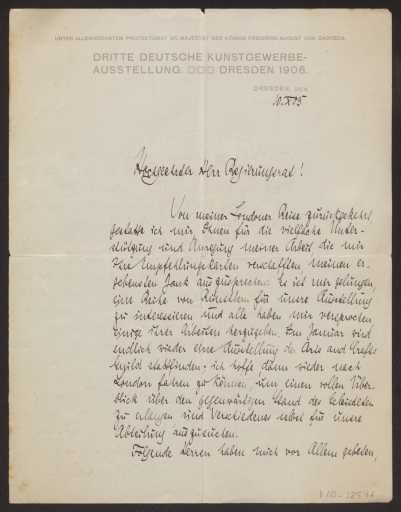 UNTER ALLERHÖCHSTEM PROTEKTORAT SR. MAJESTÄT DES KÖNIGS FRIEDRICH AUGUST VON SACHSEN.
DRITTE DEUTSCHE KUNSTGEWERBE-
AUSSTELLUNG DRESDEN 1906.
DRESDEN, DEN
10.X.05
Hochgeehrter Herr Regierungsrat!
Von meiner Londoner Reise zurückgekehrt
gestatte ich mir, Ihnen für die vielfache Unter-
stützung und Anregung meiner Arbeit, die mir
Ihre Empfehlungskarten verschafften, meinen er-
gebensten Dank auszusprechen. Es ist mir gelungen,
eine Reihe von Künstlern für unsre Ausstellung
zu interessieren und alle haben mir versprochen
einige ihrer Arbeiten herzugeben. Im Januar wird
endlich wieder eine Ausstellung der Arts and Crafts
Guild stattfinden; ich hoffe dann wieder nach
London fahren zu können, um einen vollen Über-
blick über den gegenwärtigen Stand des
zu erlangen und Verschiedenes für unsre
Abteilung auszusuchen.
Folgende Herren haben mich vor Allem gebeten,